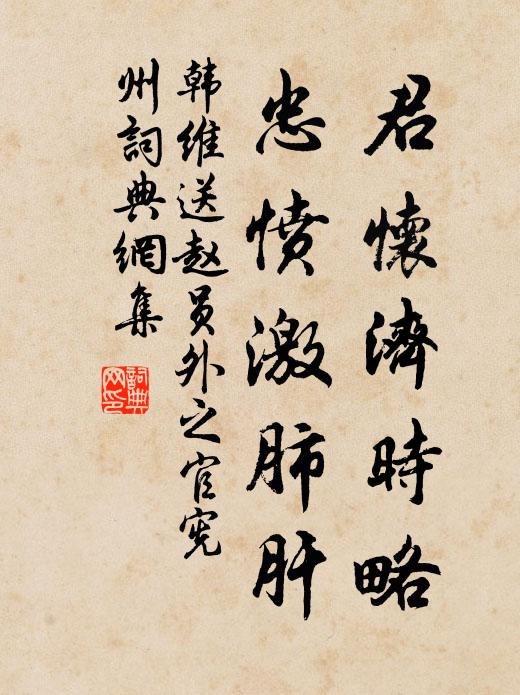 君懷濟時略
忠憤激肺肝
韩維送赵员外之官宪
州詞典網集
詞典
网印